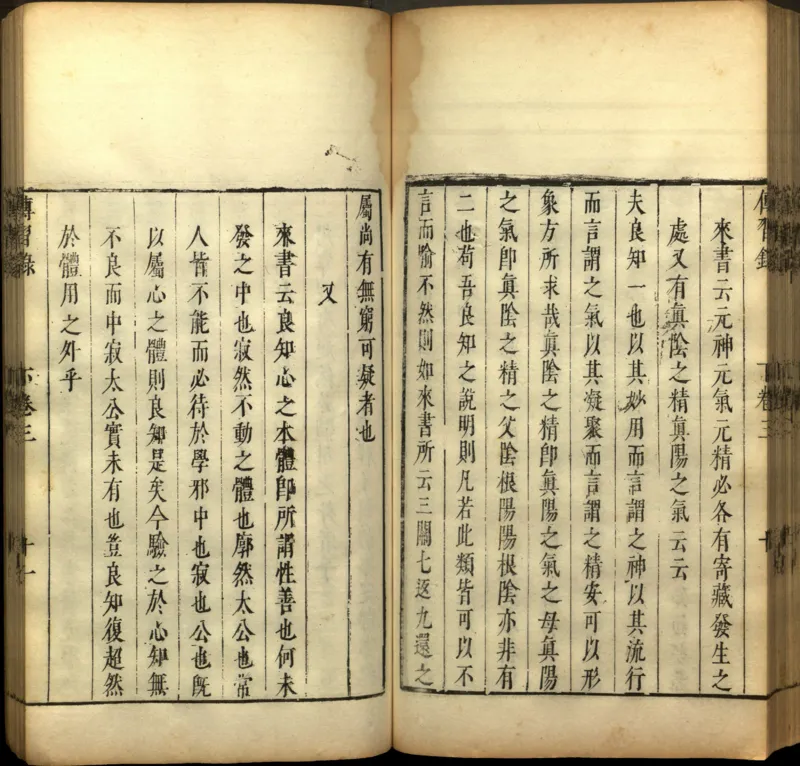 傳習錄
下卷三
十
來書云元神元氣元精必各有寄藏發生之
處又有眞陰之精眞陽之氣云云
夫良知一也以其妙用而言謂之神以其流行
而言謂之氣以其凝聚而言謂之精安可以形
象方所求哉眞陰之精即眞陽之氣之母眞陽
之氣即眞陰之精之父陰根陽陽根陰亦非有
二也苟吾良知之說明則凡若此類皆可以不
言而喻不然則如來書所云三關七返九還之
屬尚有無窮可疑者也
又
來書云良知心之本體即所謂性善也何未
發之中也寂然不動之體也廓然太公也常
人皆不能而必待於學邪中也寂也公也既
以屬心之體則良知是矣今驗之於心知無
不良而中寂太公實未有也豈良知復超然
於體用之外乎
傳習錄
下卷三
十一